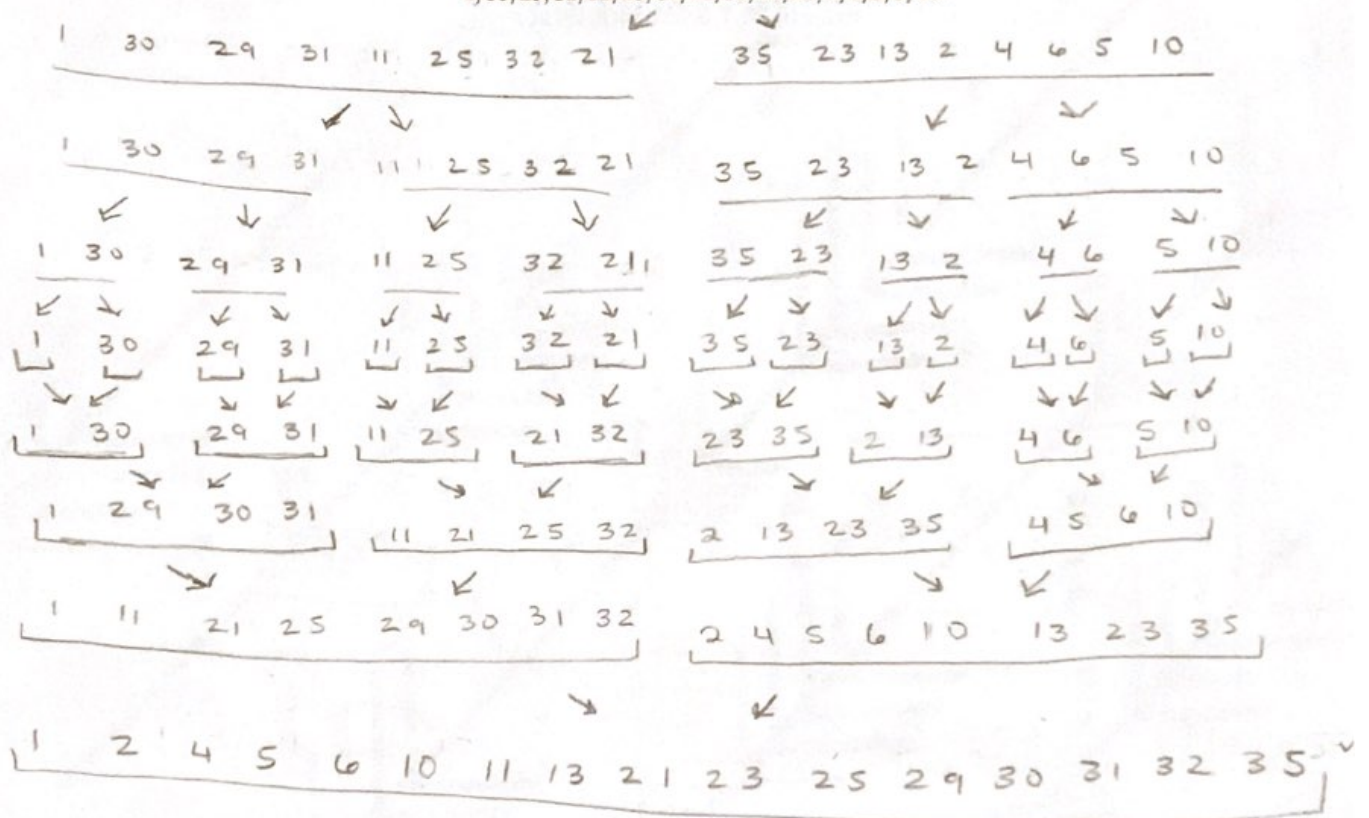 1 30 29 31 11 25 32 21 35 23 13 2 4 6 5 10
1 30 29 31 11 25 32 21 35 23 13 2 4 6 5 10
1 30 29 31 11 25 32 21 35 23 13 2 4 6 5 10
1 30 29 31 11 25 32 21 35 23 13 2 4 6 5 10
1 30 29 31 11 25 21 32 23 35 2 13 4 6 5 10
1 29 30 31 11 21 25 32 2 13 23 35 4 5 6 10
1 11 21 25 29 30 31 32 2 4 5 6 10 13 23 35
1 2 4 5 6 10 11 13 21 23 25 29 30 31 32 35